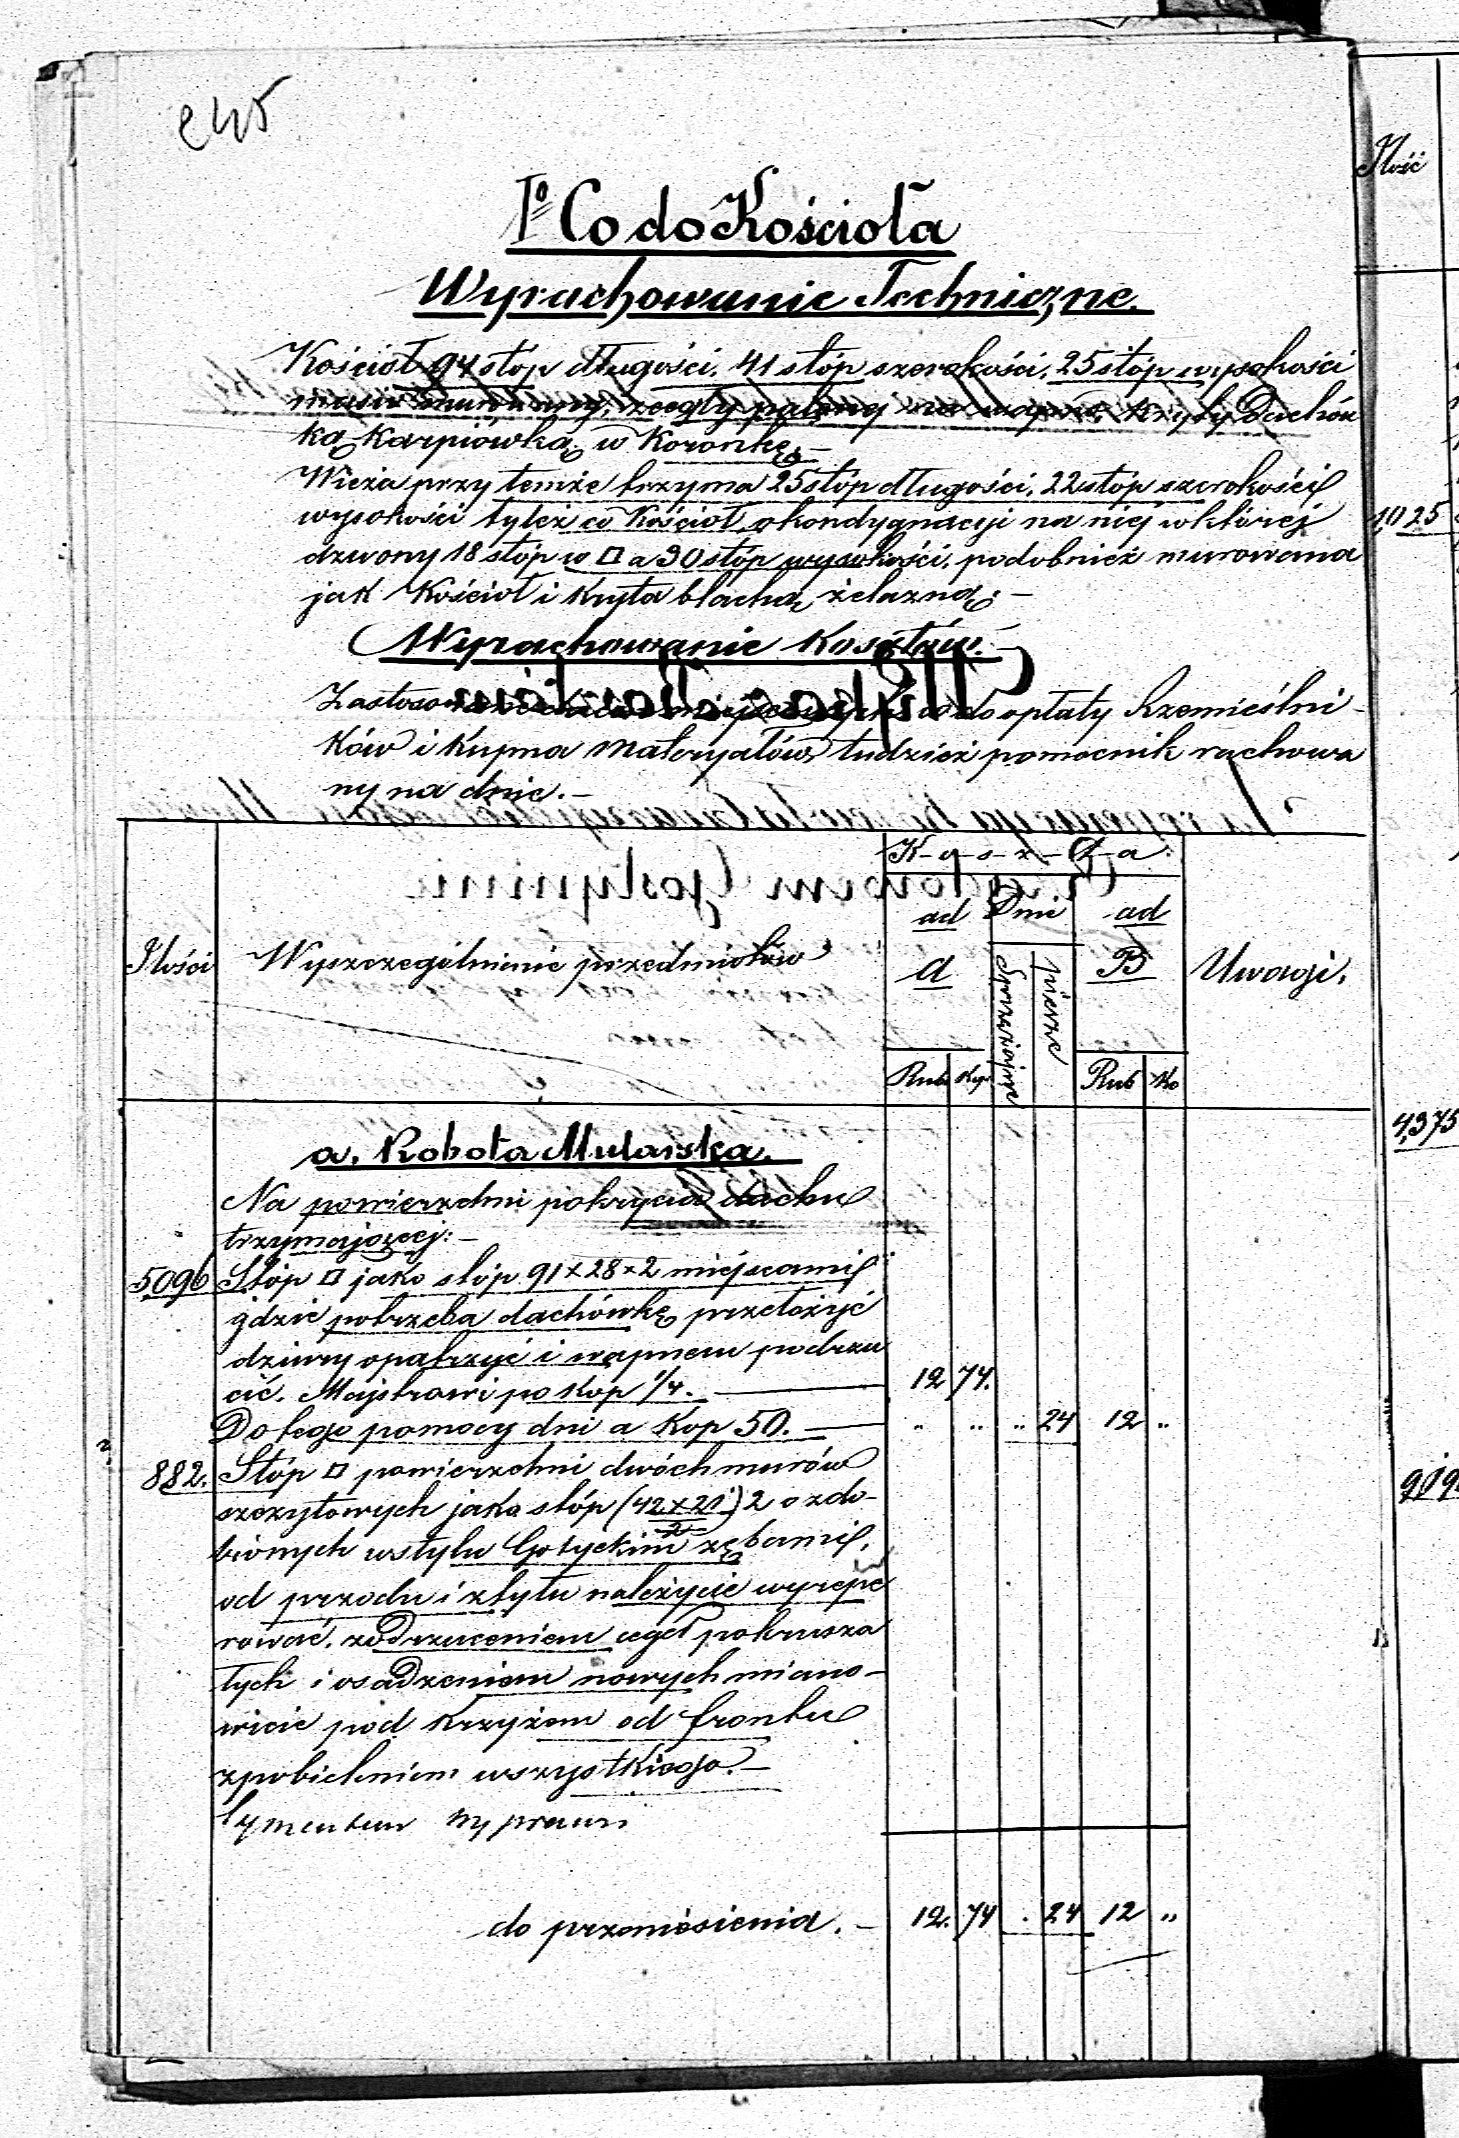 245
Iº Co do Kościoła
Wyrachowanie Techniczne.
Kościoł 94 stóp długości, 41 stóp szerokości, 25 stóp wysokości
masiw murowany, zcegły palonej na wapno, kryty Dachów
ką Karpiówką w Koronkę. –
Wieża przy temże trzyma 25 stóp długości, 22 stóp szerokości
wysokości tyleż co Kościoł, okondygnacyi na niej wktórej
dzwony 18 stóp w □ a 30 stóp wysokości, podobnież murowana
jak Kościoł i kryta blachą żelazną. –
Wyrachowanie Kosztów.
Zastosowane co do opłaty Rzemieślni-
ków i Kupna Materyałów, tudzież pomocnik rachowa
ny na dnie. –
K-o-s-z-t-a.
Ilości Wyszczególnienie przedmiotów ad a Dnie ad B Uwagi.
Sprzężajne piesze
Rub. Kop. Rub Ko
a. Robota Mularska.
Na powierzchni pokrycia dachu
trzymającej: –
5096 Stóp □ jako stóp 91 × 28 × 2 miejscami
gdzie potrzeba dachówkę przełożyć
dziury opatrzyć i wapnem podrzu
cić. Majstrowi po Kop 1/4. – 12 74.
Do tego pomocy dni a Kop 50. – „ „ „ 24 12 „
882. Stóp □ powierzchni dwóch murów
szczytowych jako stóp (42 × 21/2) 2 ozdo-
bionych wstylu Gotyckim zębami,
od przodu i ztyłu należycie wyrepe
rować, zodrzuceniem cegł pokrusza
łych i osadzeniem nowych miano-
wicie pod Krzyżem od frontu
zpobieleniem wszystkiego. –
Cymentem
do przeniesienia. – 12. 74 . 24 12 „
Ilość
1,025
4,375